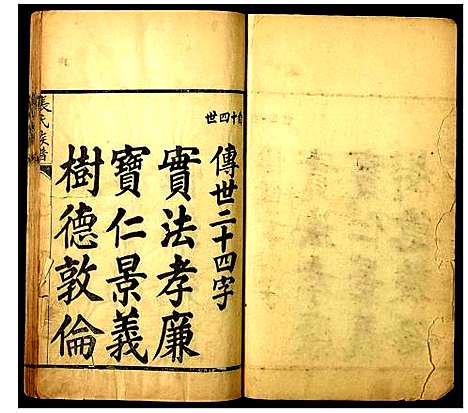 傳世二十四字
實法孝廉
寶仁景義
樹德敦倫
十四世
氏族譜